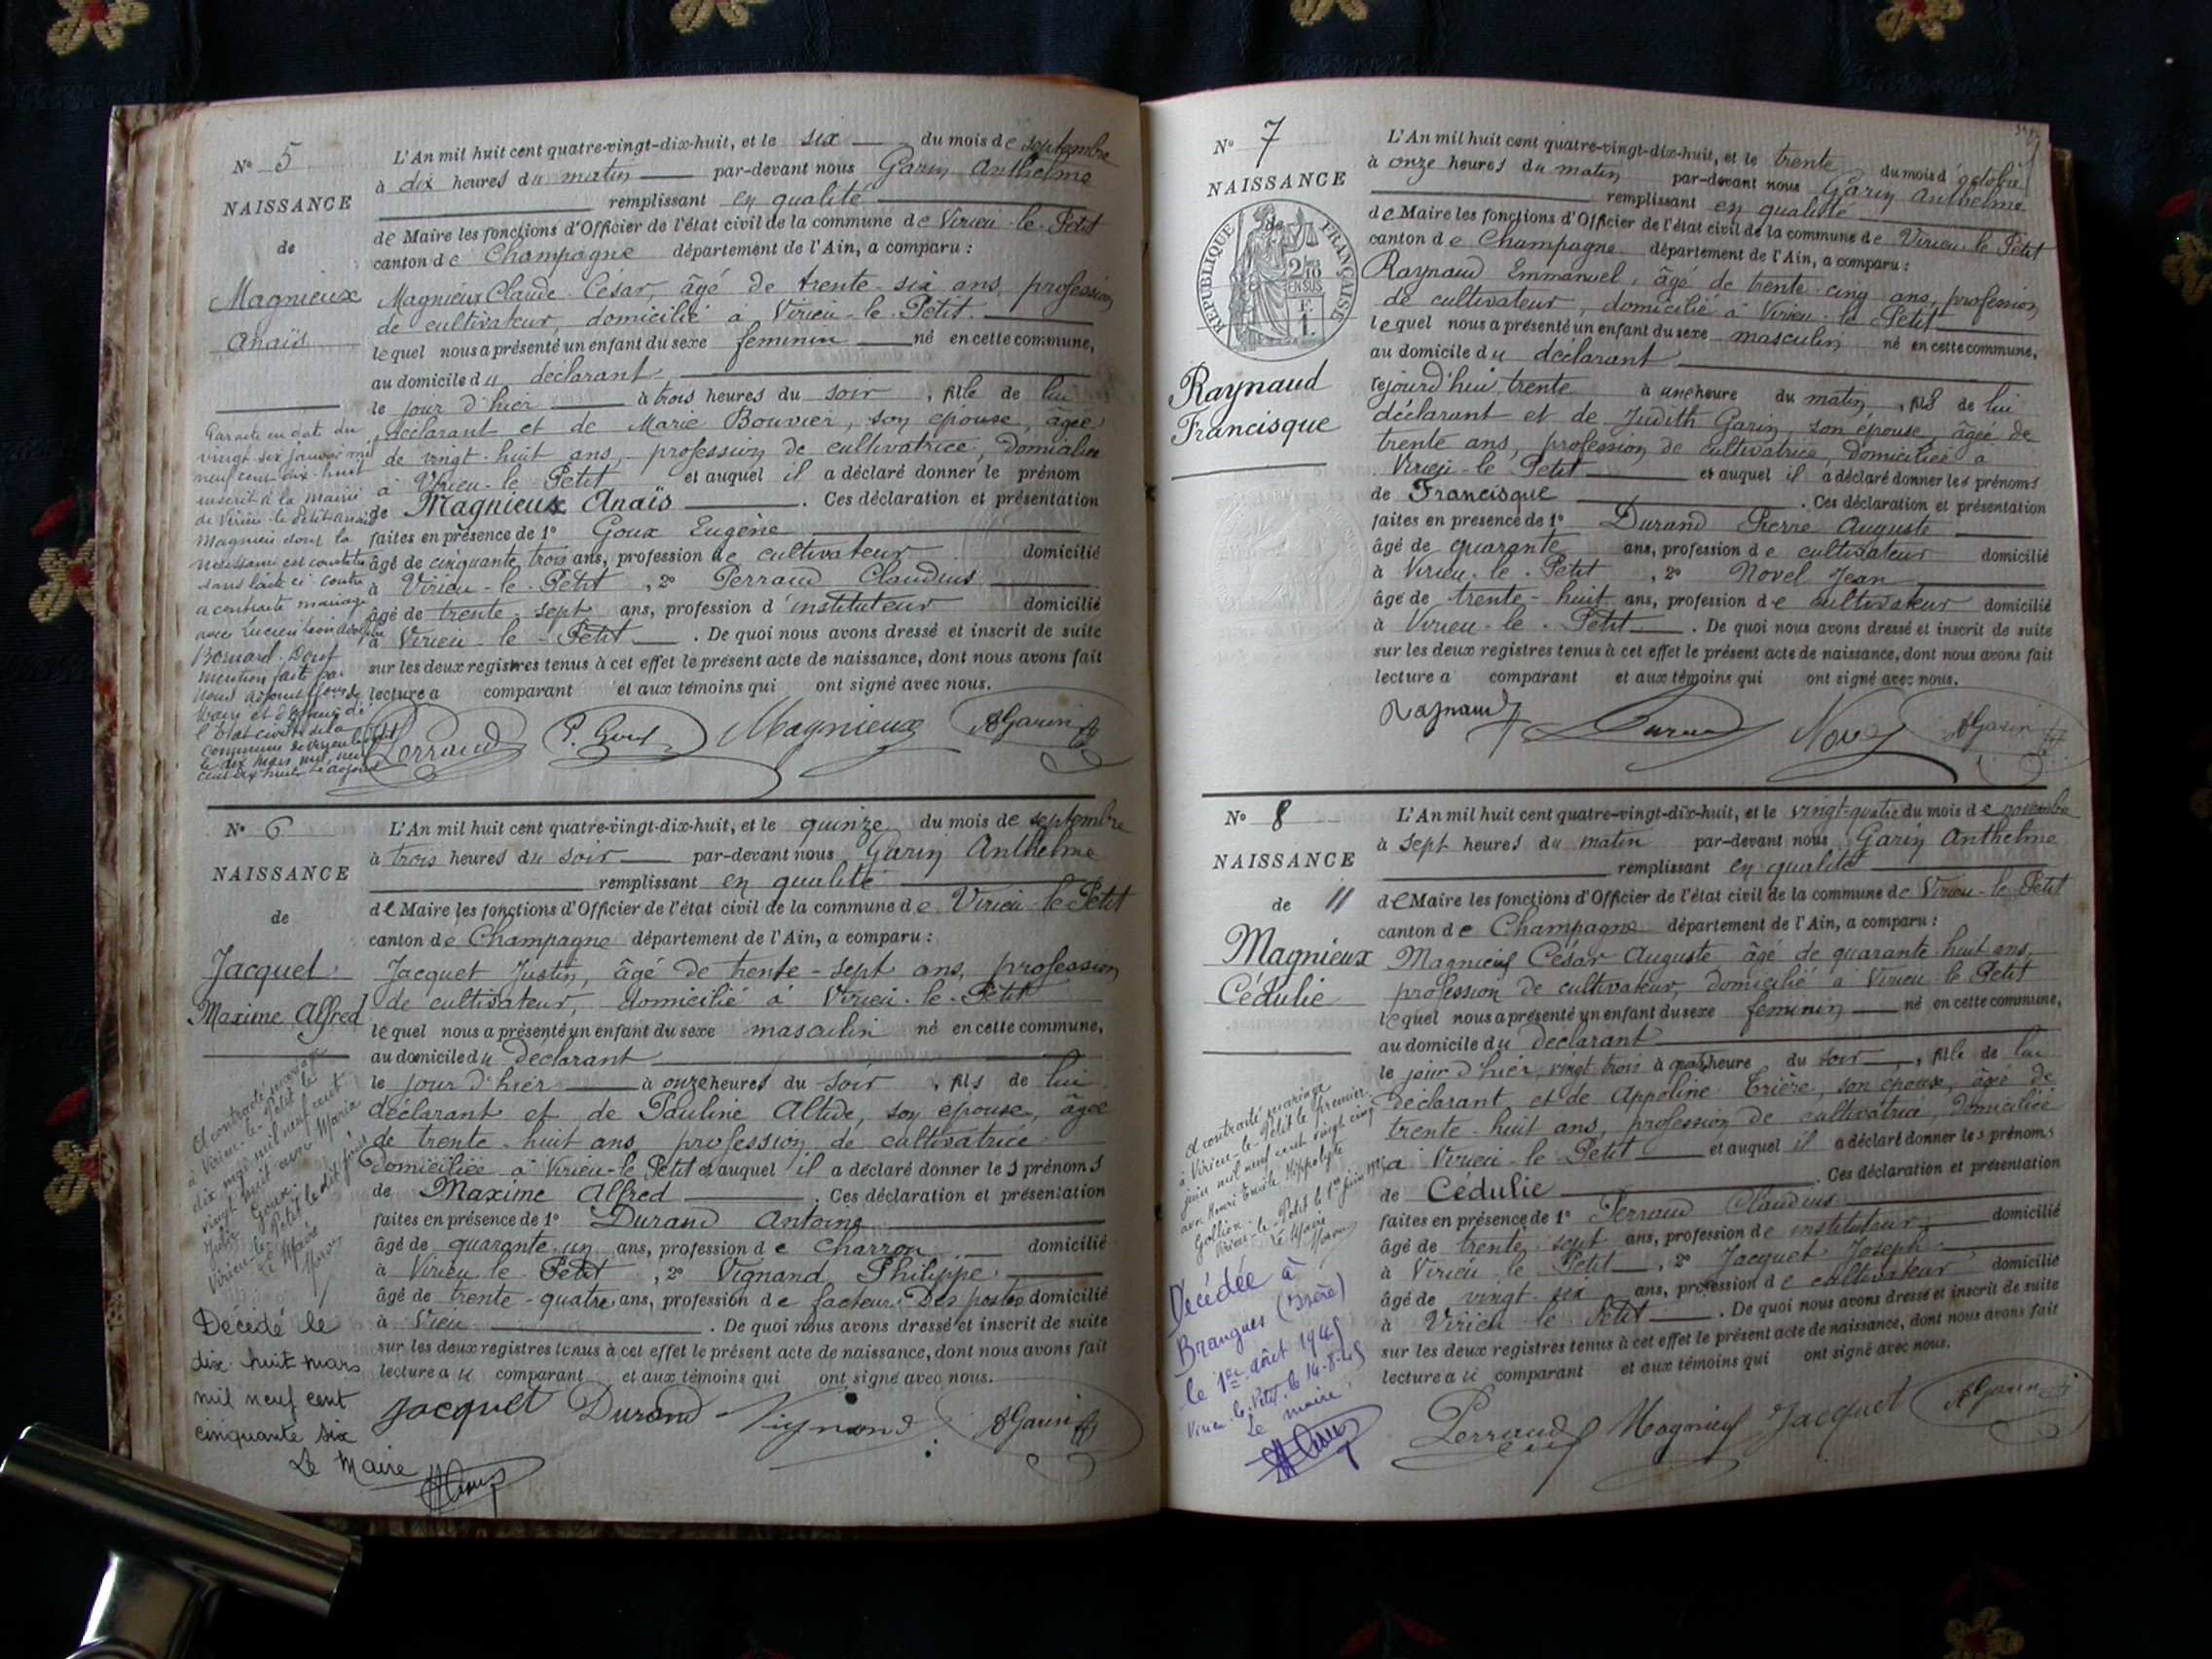 N° 5
NAISSANCE
de
Magnieux
Anaïs
L'An mil huit cent quatre-vingt-dix-huit, et le six du mois de septembre
à dix heures du matin par-devant nous Garin Anthelme
remplissant en qualité
de Maire les fonctions d'Officier de l'état civil de la commune de Virieu-le-Petit
canton de Champagne département de l'Ain, a comparu :
Magnieux Claude César, âgé de trente-six ans, profession
de cultivateur, domicilié à Virieu-le-Petit.
lequel nous a présenté un enfant du sexe feminin né en cette commune,
au domicile du déclarant
le jour d'hier à trois heures du soir, fille de lui
déclarant et de Marie Bouvier, son épouse, âgée
de vingt-huit ans, profession de cultivatrice, domiciliée
à Virieu-le Petit et auquel il a déclaré donner le prénom
de Magnieux Anaïs. Ces déclaration et présentation
faites en présence de 1° Goux Eugène
âgé de cinquante trois ans, profession de cultivateur domicilié
à Virieu-le-Petit, 2° Perraud Claudius
âgé de trente-sept ans, profession d'instituteur domicilié
à Virieu-le-Petit. De quoi nous avons dressé et inscrit de suite
sur les deux registres tenus à cet effet le présent acte de naissance, dont nous avons fait
lecture a comparant et aux témoins qui ont signé avec nous.
Par acte en date du
vingt-six janvier mil
neuf cent dix-huit
inscrit à la mairie
de Virieu-le-Petit Anaïs
Magnieu dont la
naissance est constatée
dans l'acte ci contre
a contracté mariage
avec Lucien Léon
Bornard. Dont
mention faite par
nous
Maire et
l'Etat civil de la
commune de Virieu le Petit
le dix mars mil neuf
cent dix huit
Perraud Goux Magnieux AGarin
N° 6
NAISSANCE
de
Jacquet
Maxime Alfred
L'An mil huit cent quatre-vingt-dix-huit, et le quinze du mois de septembre
à trois heures du soir par-devant nous Garin Anthelme
remplissant en qualité
de Maire les fonctions d'Officier de l'état civil de la commune de Virieu-le-Petit
canton de Champagne département de l'Ain, a comparu :
Jacquet Justin, âgé de trente-sept ans, profession
de cultivateur, domicilié à Virieu-le-Petit
lequel nous a présenté un enfant du sexe masculin né en cette commune,
au domicile du declarant
le jour d'hier à onze heures du soir, fils de lui
déclarant et de Pauline Altide, son épouse, âgée
de trente-huit ans profession de cultivatrice
domiciliée à Virieu-le Petit et auquel il a déclaré donner les prénoms
de Maxime Alfred. Ces déclaration et présentation
faites en présence de 1° Durand Antoine
âgé de quarante-un ans, profession de charron domicilié
à Virieu le Petit, 2° Vignand Philippe
âgé de trente-quatre ans, profession de facteur des postes domicilié
à Vieu. De quoi nous avons dressé et inscrit de suite
sur les deux registres tenus à cet effet le présent acte de naissance, dont nous avons fait
lecture au comparant et aux témoins qui ont signé avec nous.
A contracté mariage
à Virieu-le-Petit le
dix mai mil neuf cent
vingt huit avec Maria
Julie Goux.
Virieu-le-Petit le dit jour
Le Maire
Décédé le
dix-huit mars
mil neuf cent
cinquante six
Le Maire
Jacquet Durand Vignand AGarin
N° 7
NAISSANCE
de
RÉPUBLIQUE FRANÇAISE
2/10 EN SUS
F. 1.
Raynaud
Francisque
L'An mil huit cent quatre-vingt-dix-huit, et le trente du mois d'octobre
à onze heures du matin par-devant nous Garin Anthelme
remplissant en qualité
de Maire les fonctions d'Officier de l'état civil de la commune de Virieu-le Petit
canton de Champagne département de l'Ain, a comparu :
Raynaud Emmanuel, âgé de trente-cinq ans, profession
de cultivateur, domicilié à Virieu-le Petit
lequel nous a présenté un enfant du sexe masculin né en cette commune,
au domicile du déclarant
cejourd'hui trente à une heure du matin, fils de lui
déclarant et de Judith Garin, son épouse, âgée de
trente ans, profession de cultivatrice, domiciliée à
Virieu-le Petit et auquel il a déclaré donner les prénoms
de Francisque. Ces déclaration et présentation
faites en presence de 1° Durand Pierre Auguste
âgé de quarante ans, profession de cultivateur domicilié
à Virieu-le-Petit, 2° Novel Jean
âgé de trente-huit ans, profession de cultivateur domicilié
à Virieu-le-Petit. De quoi nous avons dressé et inscrit de suite
sur les deux registres tenus à cet effet le présent acte de naissance, dont nous avons fait
lecture a comparant et aux témoins qui ont signé avec nous.
Raynaud Durand Novel AGarin
N° 8
NAISSANCE
de 11
Magnieux
Cédulie
L'An mil huit cent quatre-vingt-dix-huit, et le vingt-quatre du mois de novembre
à sept heures du matin par-devant nous Garin Anthelme
remplissant en qualité
de Maire les fonctions d'Officier de l'état civil de la commune de Virieu-le-Petit
canton de Champagne département de l'Ain, a comparu :
Magnieux César Auguste âgé de quarante huit ans,
profession de cultivateur, domicilié à Virieu-le Petit
lequel nous a présenté un enfant du sexe feminin né en cette commune,
au domicile du déclarant
le jour d'hier, vingt trois à quatre heure du soir, fille de lui
declarant et de Appoline Erière, son épouse, âgée de
trente-huit ans, profession de cultivatrice, domiciliée
à Virieu-le Petit et auquel il a déclaré donner les prénoms
de Cédulie. Ces déclaration et présentation
faites en présence de 1° Perraud Claudius
âgé de trente-sept ans, profession de instituteur domicilié
à Virieu le Petit, 2° Jacquet Joseph
âgé de vingt-six ans, profession de cultivateur domicilié
à Virieu le Petit. De quoi nous avons dressé et inscrit de suite
sur les deux registres tenus à cet effet le présent acte de naissance, dont nous avons fait
lecture au comparant et aux témoins qui ont signé avec nous.
A contracté mariage
à Virieu-le-Petit le premier
juin mil neuf cent vingt cinq
avec Henri Emile Hippolyte
Gallien.
Virieu-le-Petit le 1er juin 1925
Le Maire
Décédée à
Brangues (Isère)
le 1er août 1945
Virieu-le-Petit le 14-8-45
Le maire
Perraud Magnieux Jacquet AGarin